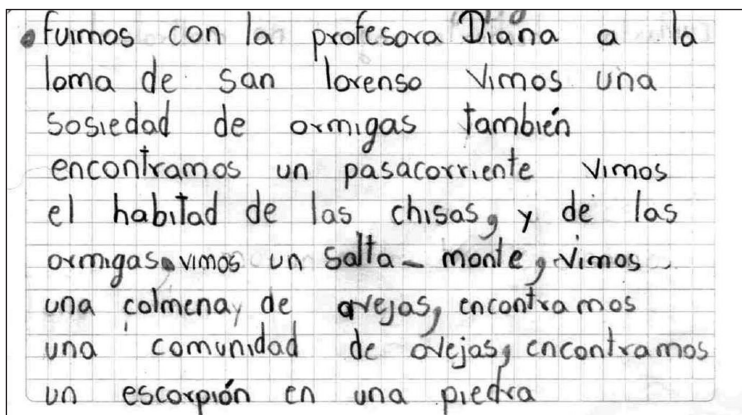 • fuimos con la profesora Diana a la
loma de san lorenso vimos una
sosiedad de ormigas también
encontramos un pasacorriente vimos
el habitad de las chisas, y de las
ormigas, vimos un salta-monte, vimos
una colmena, de avejas, encontramos
una comunidad de ovejas, encontramos
un escorpión en una piedra